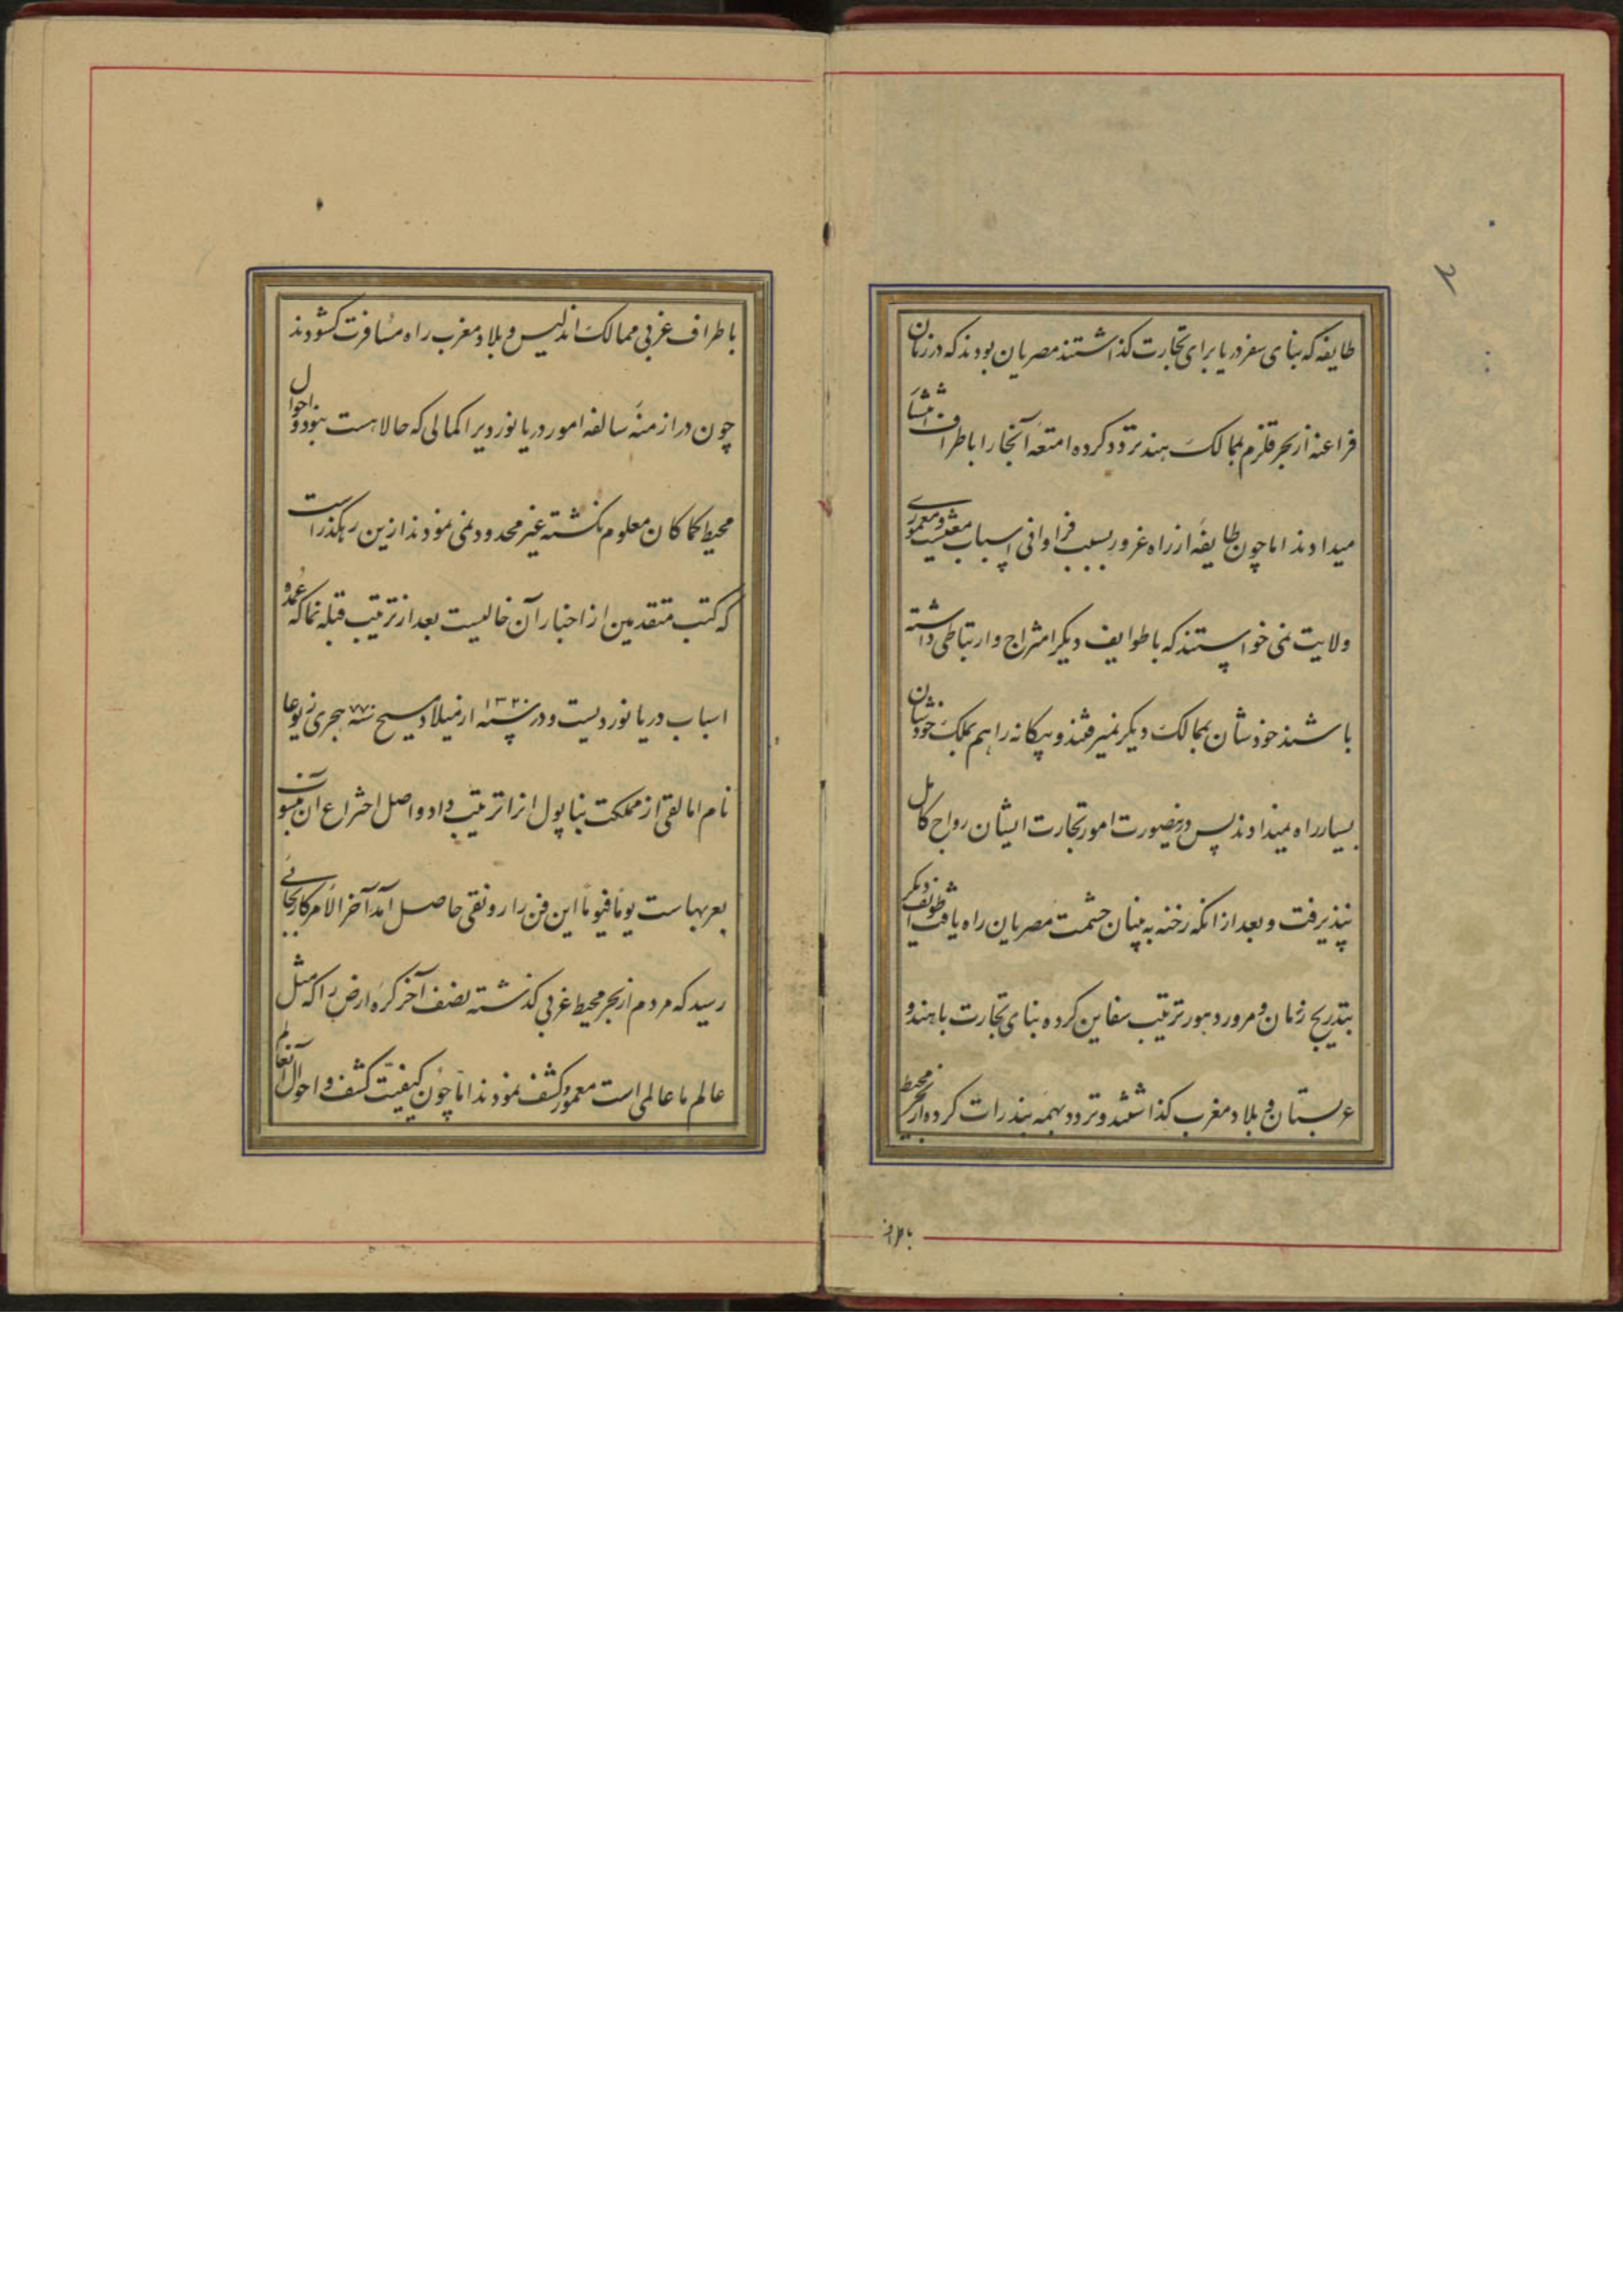 طایفه که بنای سفر دریا برای تجارت کذاشتند مصریان بودند که در زمان
فراعنه از بحر قلزم بممالک هند تردد کرده امتعه آنجا را باطراف انتشار
میدادند اما چون طایفه از راه غرور بسبب فراوانی اسباب معیشت و معموری
ولایت نمی خواستند که با طوایف دیکر امتزاج و ارتباطی داشته
باشند خودشان بممالک دیکر نمیرفتند و بیکانه را هم بملک خودشان
بسیار راه نمیدادند پس درینصورت امور تجارت ایشان رواج کامل
نپذیرفت و بعد از انکه رخنه به بنیان حشمت مصریان راه یافت طوایف دیکر
بتدریج زمان و مرور دهور ترتیب سفاین کرده بنای تجارت با هند و
عربستان و بلاد مغرب کذاشتند و تردد بهمه بندرات کرده از بحر محیط
باطراف
باطراف غربی ممالک اندلیس و بلاد مغرب راه مسافرت کشودند
چون در ازمنه سالفه امور دریا نوردیرا کمالی که حالا هست نبود و احوال
محیط کما کان معلوم نکشته غیر محدود می نمودند ازین رهکذر است
که کتب متقدمین از اخبار آن خالیست بعد از ترتیب قبله نما که عمده
اسباب دریا نوردیست و در سنه ۱۳۲۰ از میلاد مسیح سنه ۷۷۰ هجری
نام امالقی از مملکت بناپول انرا ترتیب داد و اصل اختراع ان منسوب
بعربهاست یوما فیوما این فن را رونقی حاصل آمد آخر الامر کار بجائی
رسید که مردم از بحر محیط غربی کذشته نصف آخر کره ارض را که مثل
عالم ما عالمی است معمور کشف نمودند اما چون کیفیت کشف و احوال آنعالم